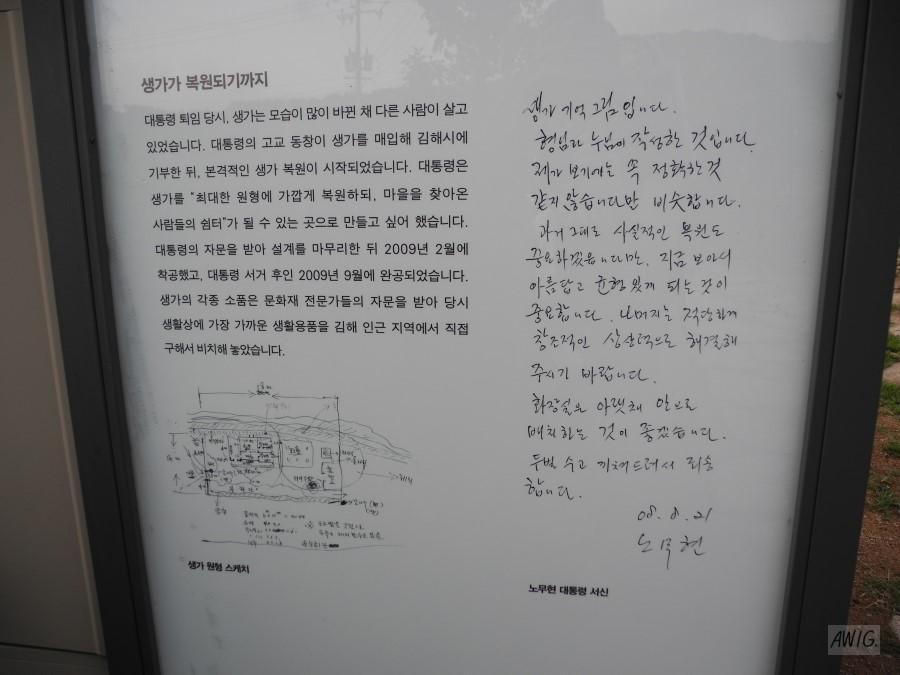 생가가 복원되기까지
대통령 퇴임 당시, 생가는 모습이 많이 바뀐 채 다른 사람이 살고
있었습니다. 대통령의 고교 동창이 생가를 매입해 김해시에
기부한 뒤, 본격적인 생가 복원이 시작되었습니다. 대통령은
생가를 “최대한 원형에 가깝게 복원하되, 마을을 찾아온
사람들의 쉼터”가 될 수 있는 곳으로 만들고 싶어 했습니다.
대통령의 자문을 받아 설계를 마무리한 뒤 2009년 2월에
착공했고, 대통령 서거 후인 2009년 9월에 완공되었습니다.
생가의 각종 소품은 문화재 전문가들의 자문을 받아 당시
생활상에 가장 가까운 생활용품을 김해 인근 지역에서 직접
구해서 비치해 놓았습니다.
생가 원형 스케치
생가 기억 그림 입니다.
형님과 누님이 작성한 것입니다.
제가 보기에는 썩 정확한 것
같지 않습니다만 비슷합니다.
과거 그대로 사실적인 복원도
중요하겠습니다만, 지금 보아서
아름답고 균형 있게 되는 것이
중요합니다. 나머지는 적당하게
창조적인 상상력으로 해결해
주시기 바랍니다.
화장실은 아랫채 안으로
배치하는 것이 좋겠습니다.
두번 수고 끼쳐드려서 죄송
합니다.
08. 8. 21
노무현
노무현 대통령 서신
AWIG.